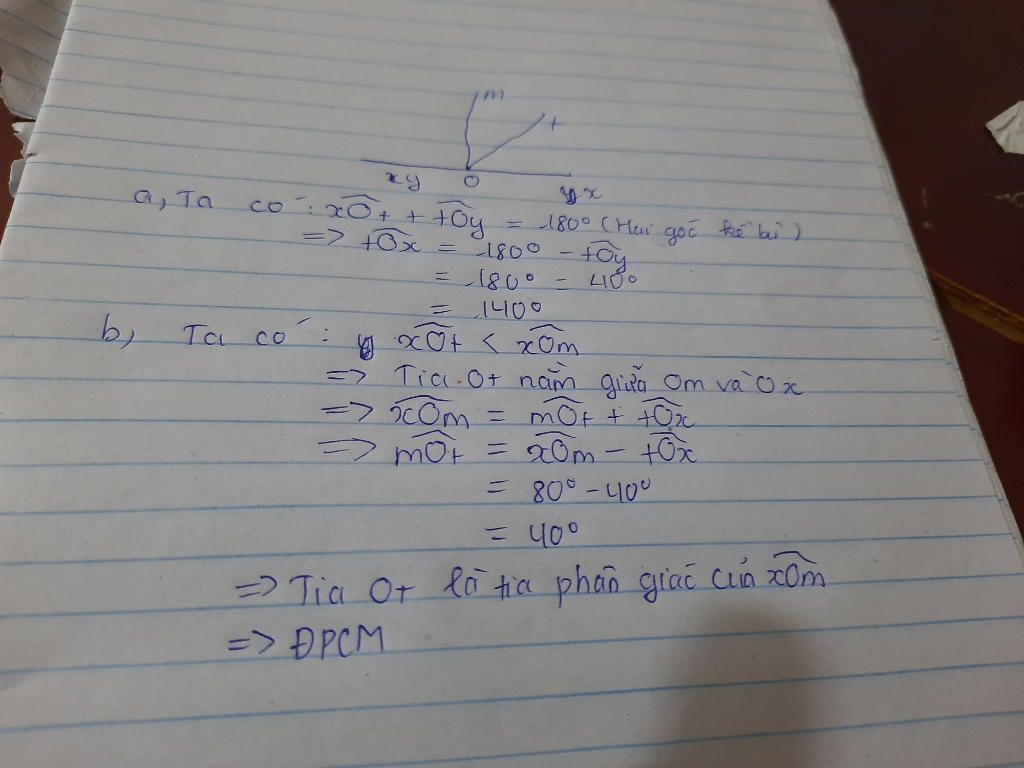 m
t
xy O yx
a, Ta có: xÔt + tÔy = 180° (Hai góc kề bù)
=> tÔx = 180° - tÔy
= 180° - 40°
= 140°
b, Ta có: xÔt < xÔm
=> Tia Ot nằm giữa Om và Ox
=> xÔm = mÔt + tÔx
=> mÔt = xÔm - tÔx
= 80° - 40°
= 40°
=> Tia Ot là tia phân giác của xÔm
=> ĐPCM